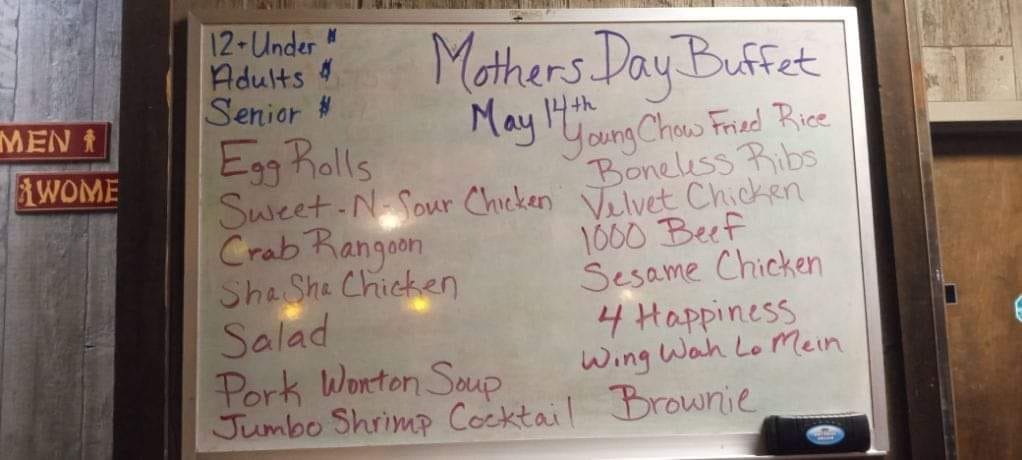 12+Under $
Adults $
Senior $
Mothers Day Buffet
May 14th
Egg Rolls
Sweet-N-Sour Chicken
Crab Rangoon
Sha Sha Chicken
Salad
Pork Wonton Soup
Jumbo Shrimp Cocktail
Young Chow Fried Rice
Boneless Ribs
Velvet Chicken
1000 Beef
Sesame Chicken
4 Happiness
Wing Wah Lo Mein
Brownie
MEN
WOME